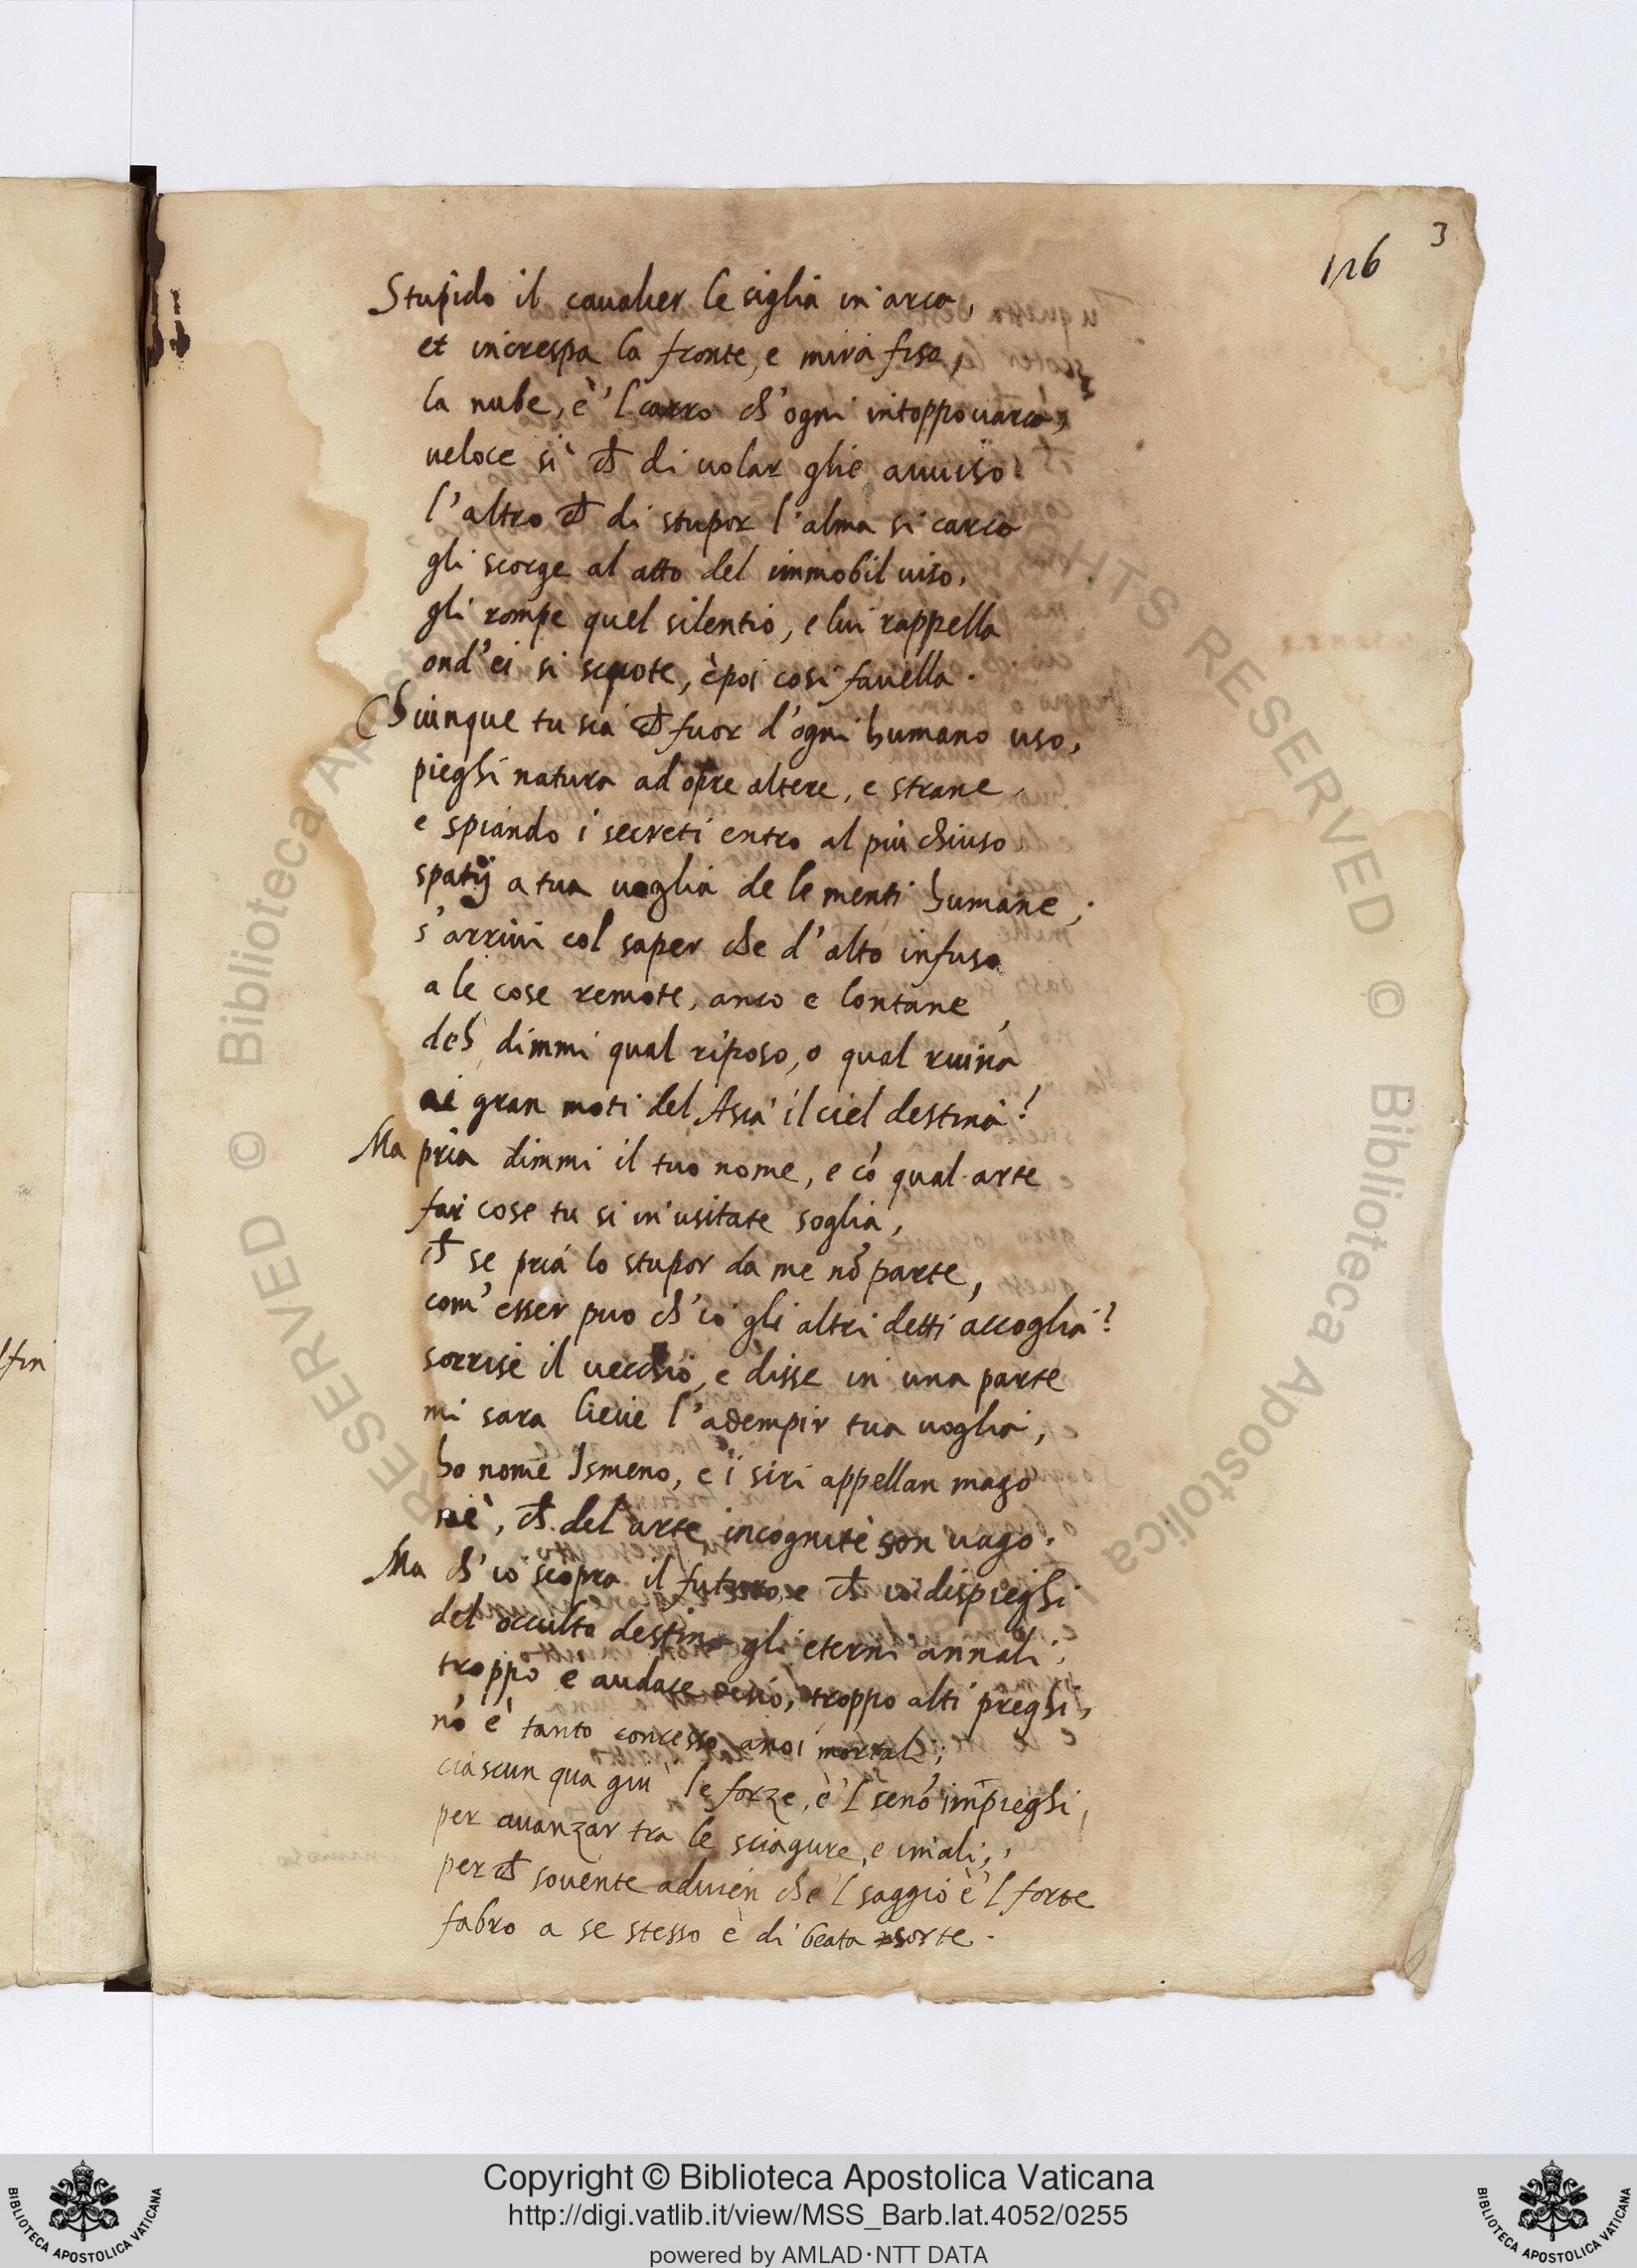 3
126
Stupido il caualier le ciglia in arca,
et increspa la fronte, e mira fiso,
la nube, è 'l carro ch'ogni intoppo uarca,
ueloce si che di uolar glie auuiso.
l'altro che di stupor l'alma si carca
gli scorge al atto del immobil uiso,
gli rompe quel silentio, e lui rappella
ond'ei si scuote, è poi cosi fauella.
Chiunque tu sia che fuor d'ogni humano uso,
pieghi natura ad opre altere, e strane,
e spiando i secreti entro al piu chiuso
spatij a tua uoglia de le menti humane;
s'arriui col saper che d'alto infuso
a le cose remote, anco e lontane,
deh dimmi qual riposo, o qual ruina
ai gran moti del Asia il ciel destina?
Ma pria dimmi il tuo nome, e có qual arte
far cose tu si in'usitate soglia,
che se pria lo stupor da me nō parte,
com'esser puo ch'io gli altri detti accoglia?
sorrise il uecchio, e disse in una parte
mi sara lieue l'adempir tua uoglia,
ho nome Ismeno, e i siri appellan mago
mè, che del arte incognite son uago.
Ma ch'io scopra il futuro, e ch'io dispieghi
del occulto destino gli eterni annali;
troppo e audace desio, troppo alti preghi,
nō è tanto concesso a noi mortali;
ciascun qua giu le forze, è 'l senō impieghi,
per auanzar tra le sciagure, e i mali;
perche souente aduien che 'l saggio è 'l forte
fabro a se stesso è di beata sorte.
lfin
© Biblioteca Apostolica Vaticana
RIGHTS RESERVED
Copyright © Biblioteca Apostolica Vaticana
http://digi.vatlib.it/view/MSS_Barb.lat.4052/0255
powered by AMLAD·NTT DATA
BIBLIOTECA APOSTOLICA VATICANA
BIBLIOTECA APOSTOLICA VATICANA